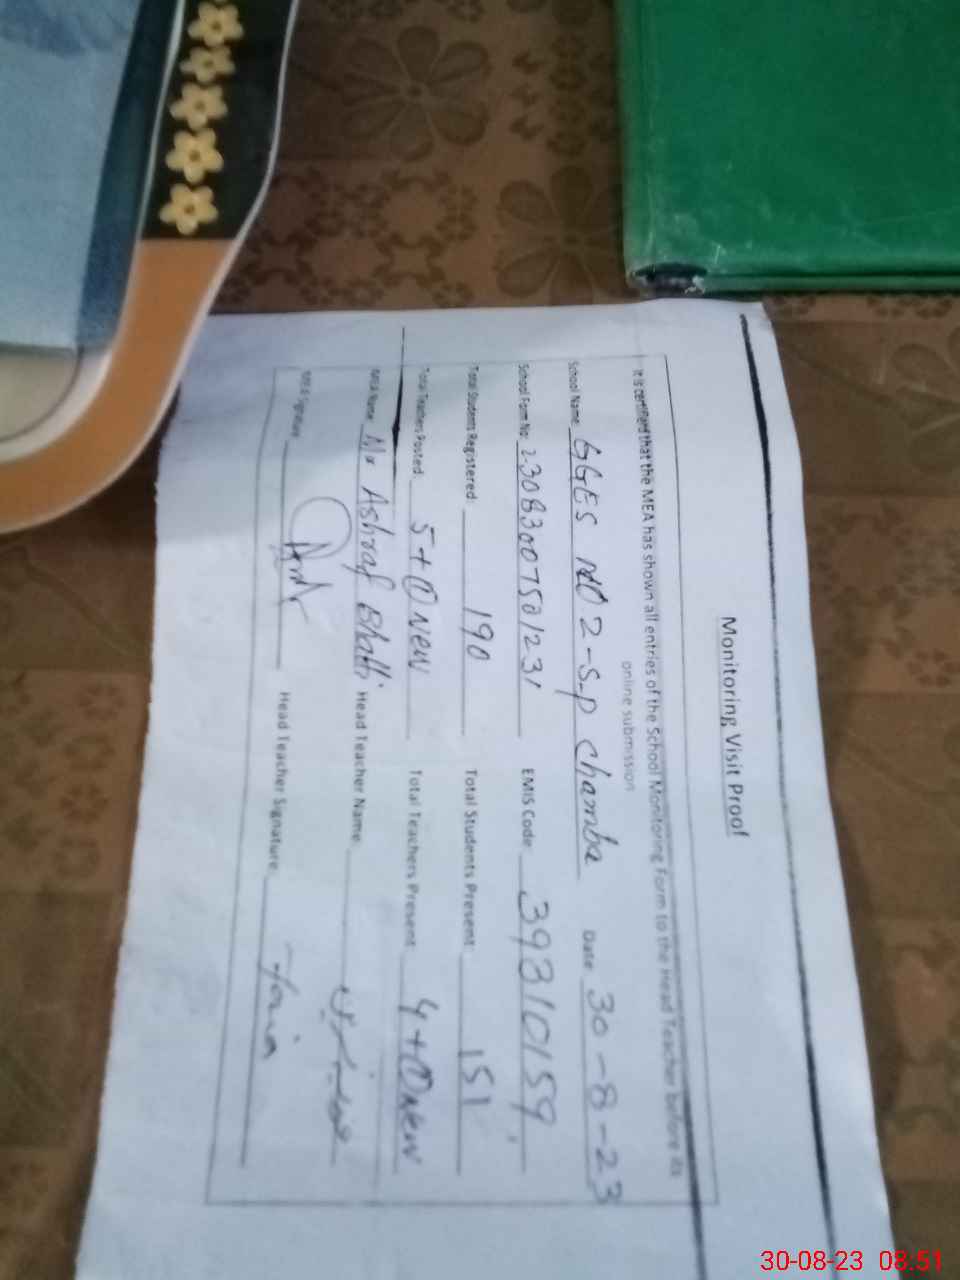 Monitoring Visit Proof
It is certified that the MEA has shown all entries of the School Monitoring Form to the Head Teacher before its
online submission
School Name GGES NO 2-S-P Chamba Date 30-8-23
School Form No: 23083007501231 EMIS Code 39310159
Total Students Registered: 190 Total Students Present: 151
Total Teachers Posted: 5+① New Total Teachers Present: 4+① New
MEA Name Mr Ashraf Bhatti Head Teacher Name
MEA Signature Head Teacher Signature
30-08-23 08:51